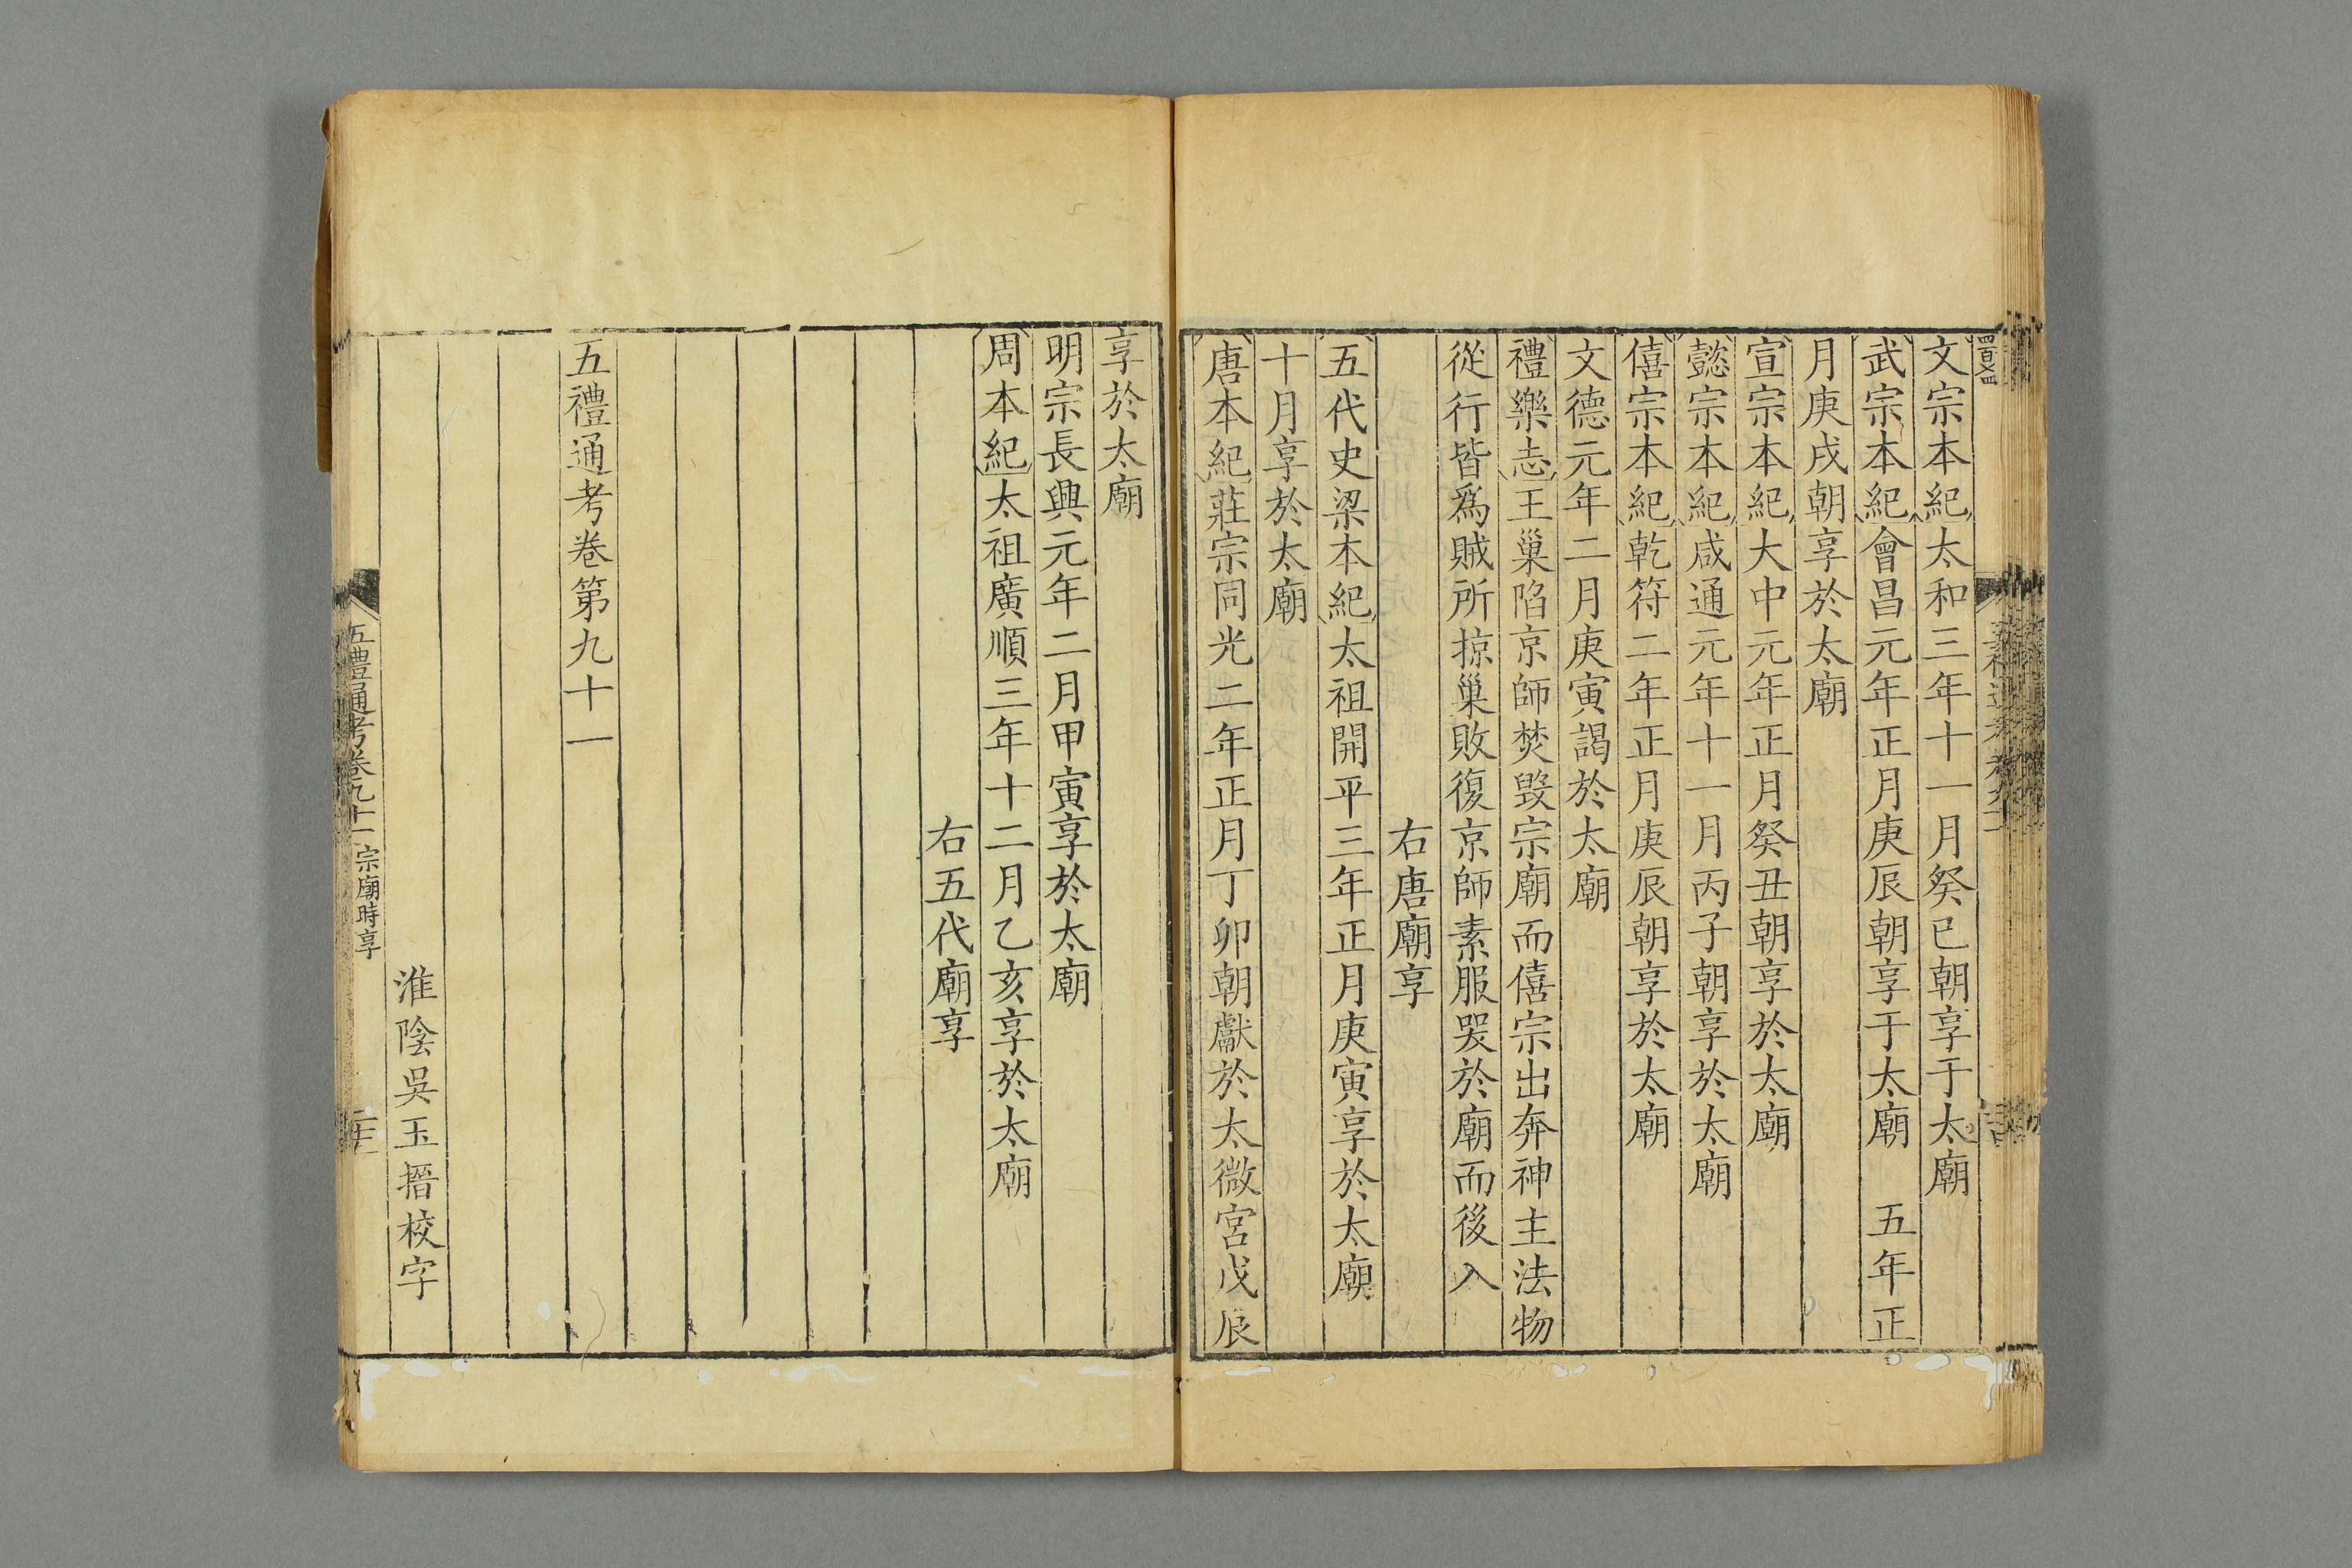 文宗本紀太和三年十一月癸巳朝享于太廟
武宗本紀會昌元年正月庚辰朝享于太廟　五年正
月庚戌朝享於太廟
宣宗本紀大中元年正月癸丑朝享於太廟
懿宗本紀咸通元年十一月丙子朝享於太廟
僖宗本紀乾符二年正月庚辰朝享於太廟
文德元年二月庚寅謁於太廟
禮樂志王巢陷京師焚毀宗廟而僖宗出奔神主法物
從行皆爲賊所掠巢敗復京師素服哭於廟而後入
右唐廟享
五代史梁本紀太祖開平三年正月庚寅享於太廟
十月享於太廟
唐本紀莊宗同光二年正月丁卯朝獻於太微宮戊辰
享於太廟
明宗長興元年二月甲寅享於太廟
周本紀太祖廣順三年十二月乙亥享於太廟
右五代廟享
五禮通考卷第九十一
淮陰吳玉搢校字
五禮通考卷九十一宗廟時享